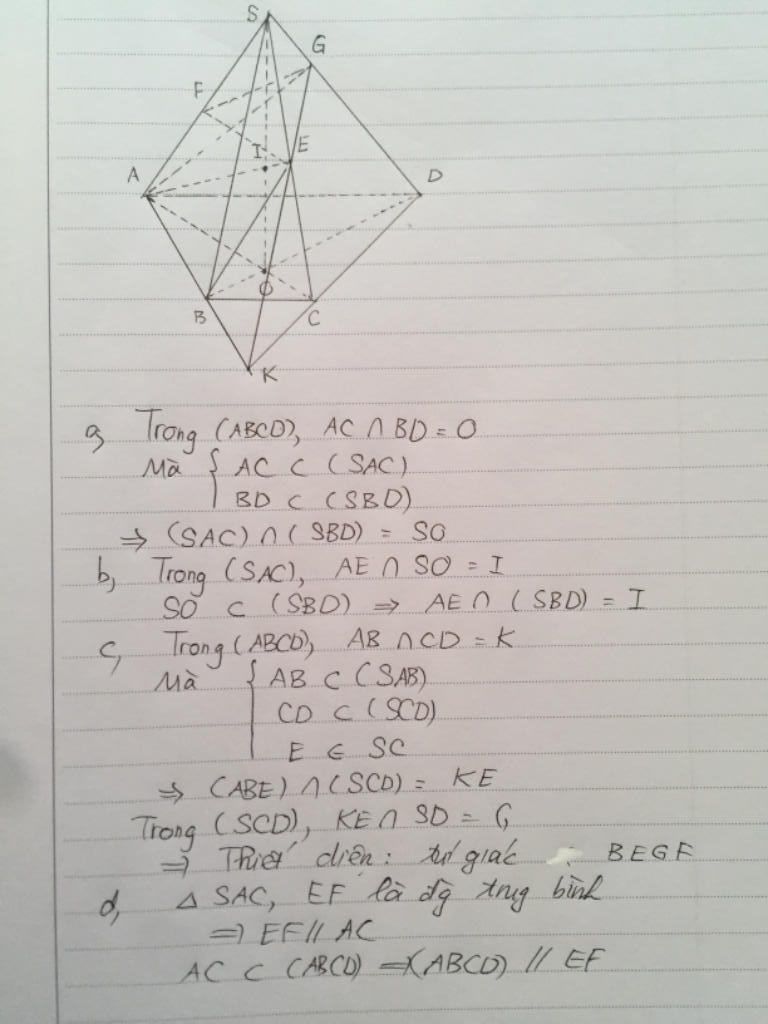 S
G
F
I
E
A
D
O
B
C
K
a, Trong (ABCD), AC ∩ BD = O
Mà { AC ⊂ (SAC)
BD ⊂ (SBD)
⇒ (SAC) ∩ (SBD) = SO
b, Trong (SAC), AE ∩ SO = I
SO ⊂ (SBD) ⇒ AE ∩ (SBD) = I
c, Trong (ABCD), AB ∩ CD = K
Mà { AB ⊂ (SAB)
CD ⊂ (SCD)
E ∈ SC
⇒ (ABE) ∩ (SCD) = KE
Trong (SCD), KE ∩ SD = G
⇒ Thiết diện : tứ giác : BEGF
d, △ SAC, EF là đg trug bình
⇒ EF // AC
AC ⊂ (ABCD) ⇒ (ABCD) // EF